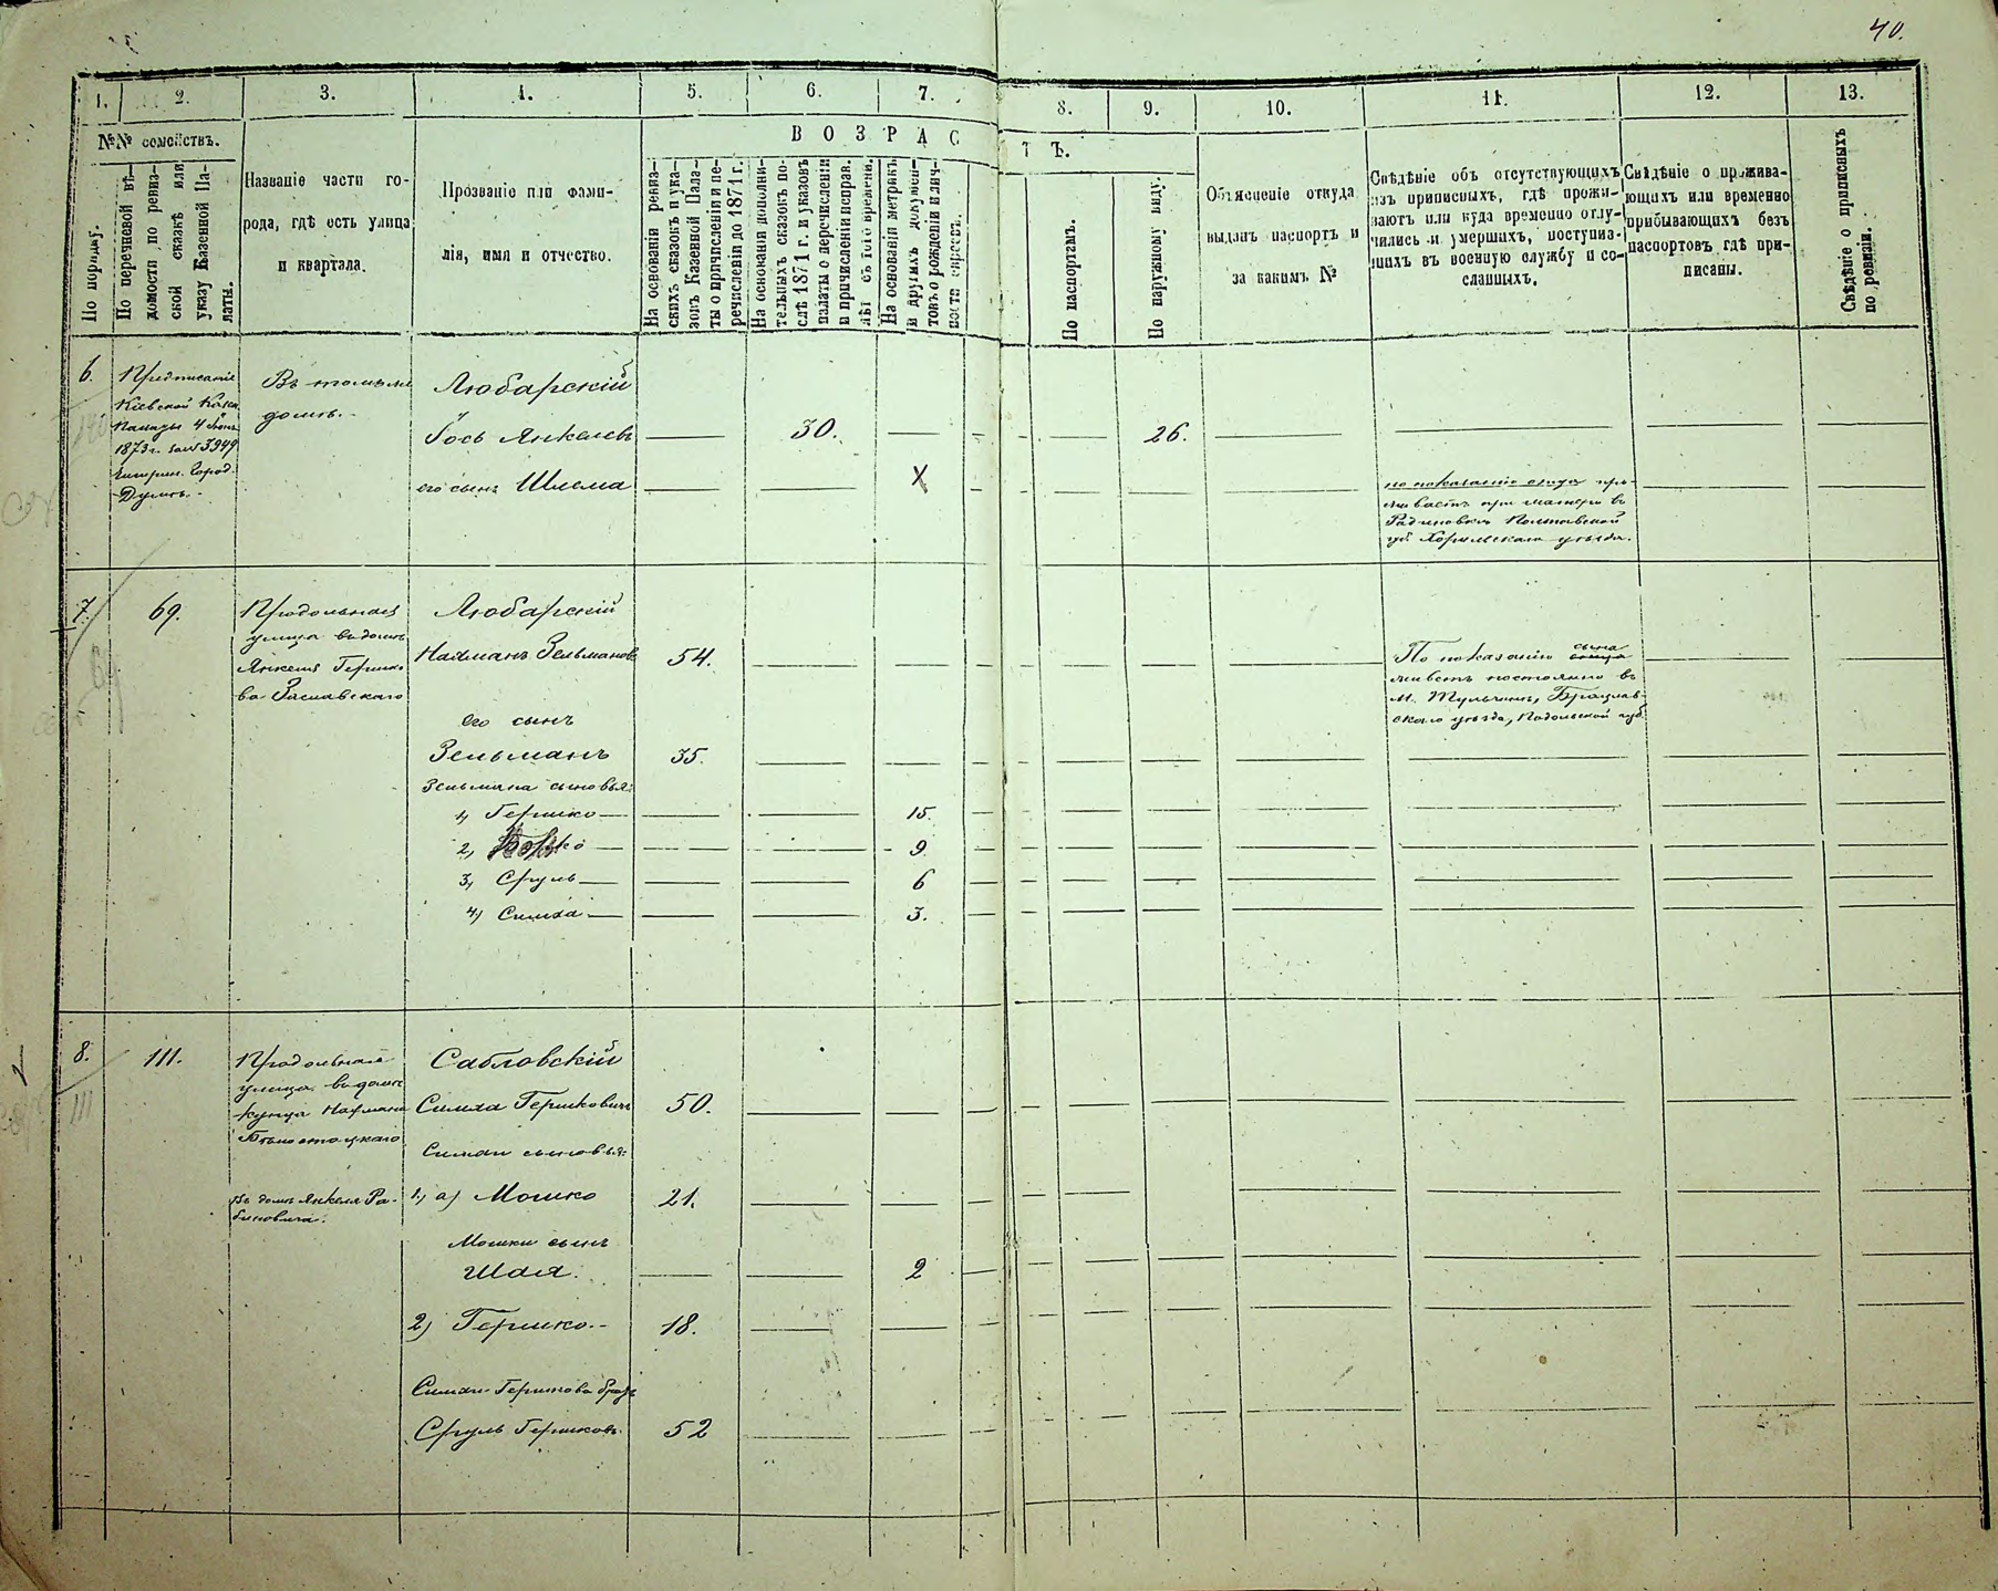 40.
1. 2. 3. 4. 5. 6. 7. 8. 9. 10. 11. 12. 13.
№№ семействъ.
В О З Р А С Т Ъ.
По порядку.
По перечневой вѣ-
домости по ревиз-
ской сказкѣ или
указу Казенной Па-
латы.
Названіе части го-
рода, гдѣ есть улица
и квартала.
Прозваніе или фами-
лія, имя и отчество.
На основаніи ревиз-
скихъ сказокъ и ука-
зовъ Казенной Пала-
ты о причисленіи и пе-
речисленіи до 1871 г.
На основаніи дополни-
тельныхъ сказокъ по-
слѣ 1871 г. и указовъ
палаты о перечисленіи
и причисленіи исправ.
На основаніи метрикъ
и другихъ докумен-
товъ о рожденіи и лич-
По паспортамъ.
По наружному виду.
Объясненіе откуда
выданъ паспортъ и
за какимъ №
Свѣдѣніе объ отсутствующихъ
изъ приписныхъ, гдѣ прожи-
ваютъ или куда временно отлу-
чились и умершихъ, поступив-
шихъ въ военную службу и со-
сланныхъ.
Свѣдѣніе о прожива-
ющихъ или временно
прибывающихъ безъ
паспортовъ гдѣ при-
писаны.
Свѣдѣніе о приписныхъ
по ревизіи.
6.
Предписаніе
Кіевской Казен
Палаты
1873 г. за № 3949
Город.
Думѣ.
Въ томъ же
домѣ.
Любарскій
Іось Янкелевъ 30. 26.
его сынъ Шлема X
по показанію отца про-
живаетъ при матери въ
Полтавской
губ. Хорольскаго уѣзда.
7. 69.
Продольная
улица въ домѣ
Янкеля Гершко-
ва Заславскаго
Любарскій
Нахманъ Зельмановъ 54.
По показанію сына
живетъ постоянно въ
м. Тульчинѣ, Брацлав-
скаго уѣзда, Подольской губ.
его сынъ
Зельманъ 35.
Зельмана сыновья:
1) Гершко 15
2) 9
3) Сруль 6
4) Симха 3.
8. 111.
Продольная
улица въ домѣ
купца Нахмана
Бѣлостоцкаго
Сабловскій
Симха Гершковичъ 50.
Симхи сыновья:
Въ домѣ Янкеля Ра-
биновича.
1) а) Мошко 21.
Мошки сынъ
Шая. 2
2) Гершко. 18.
Симхи Гершкова братъ
Сруль Гершковъ. 52